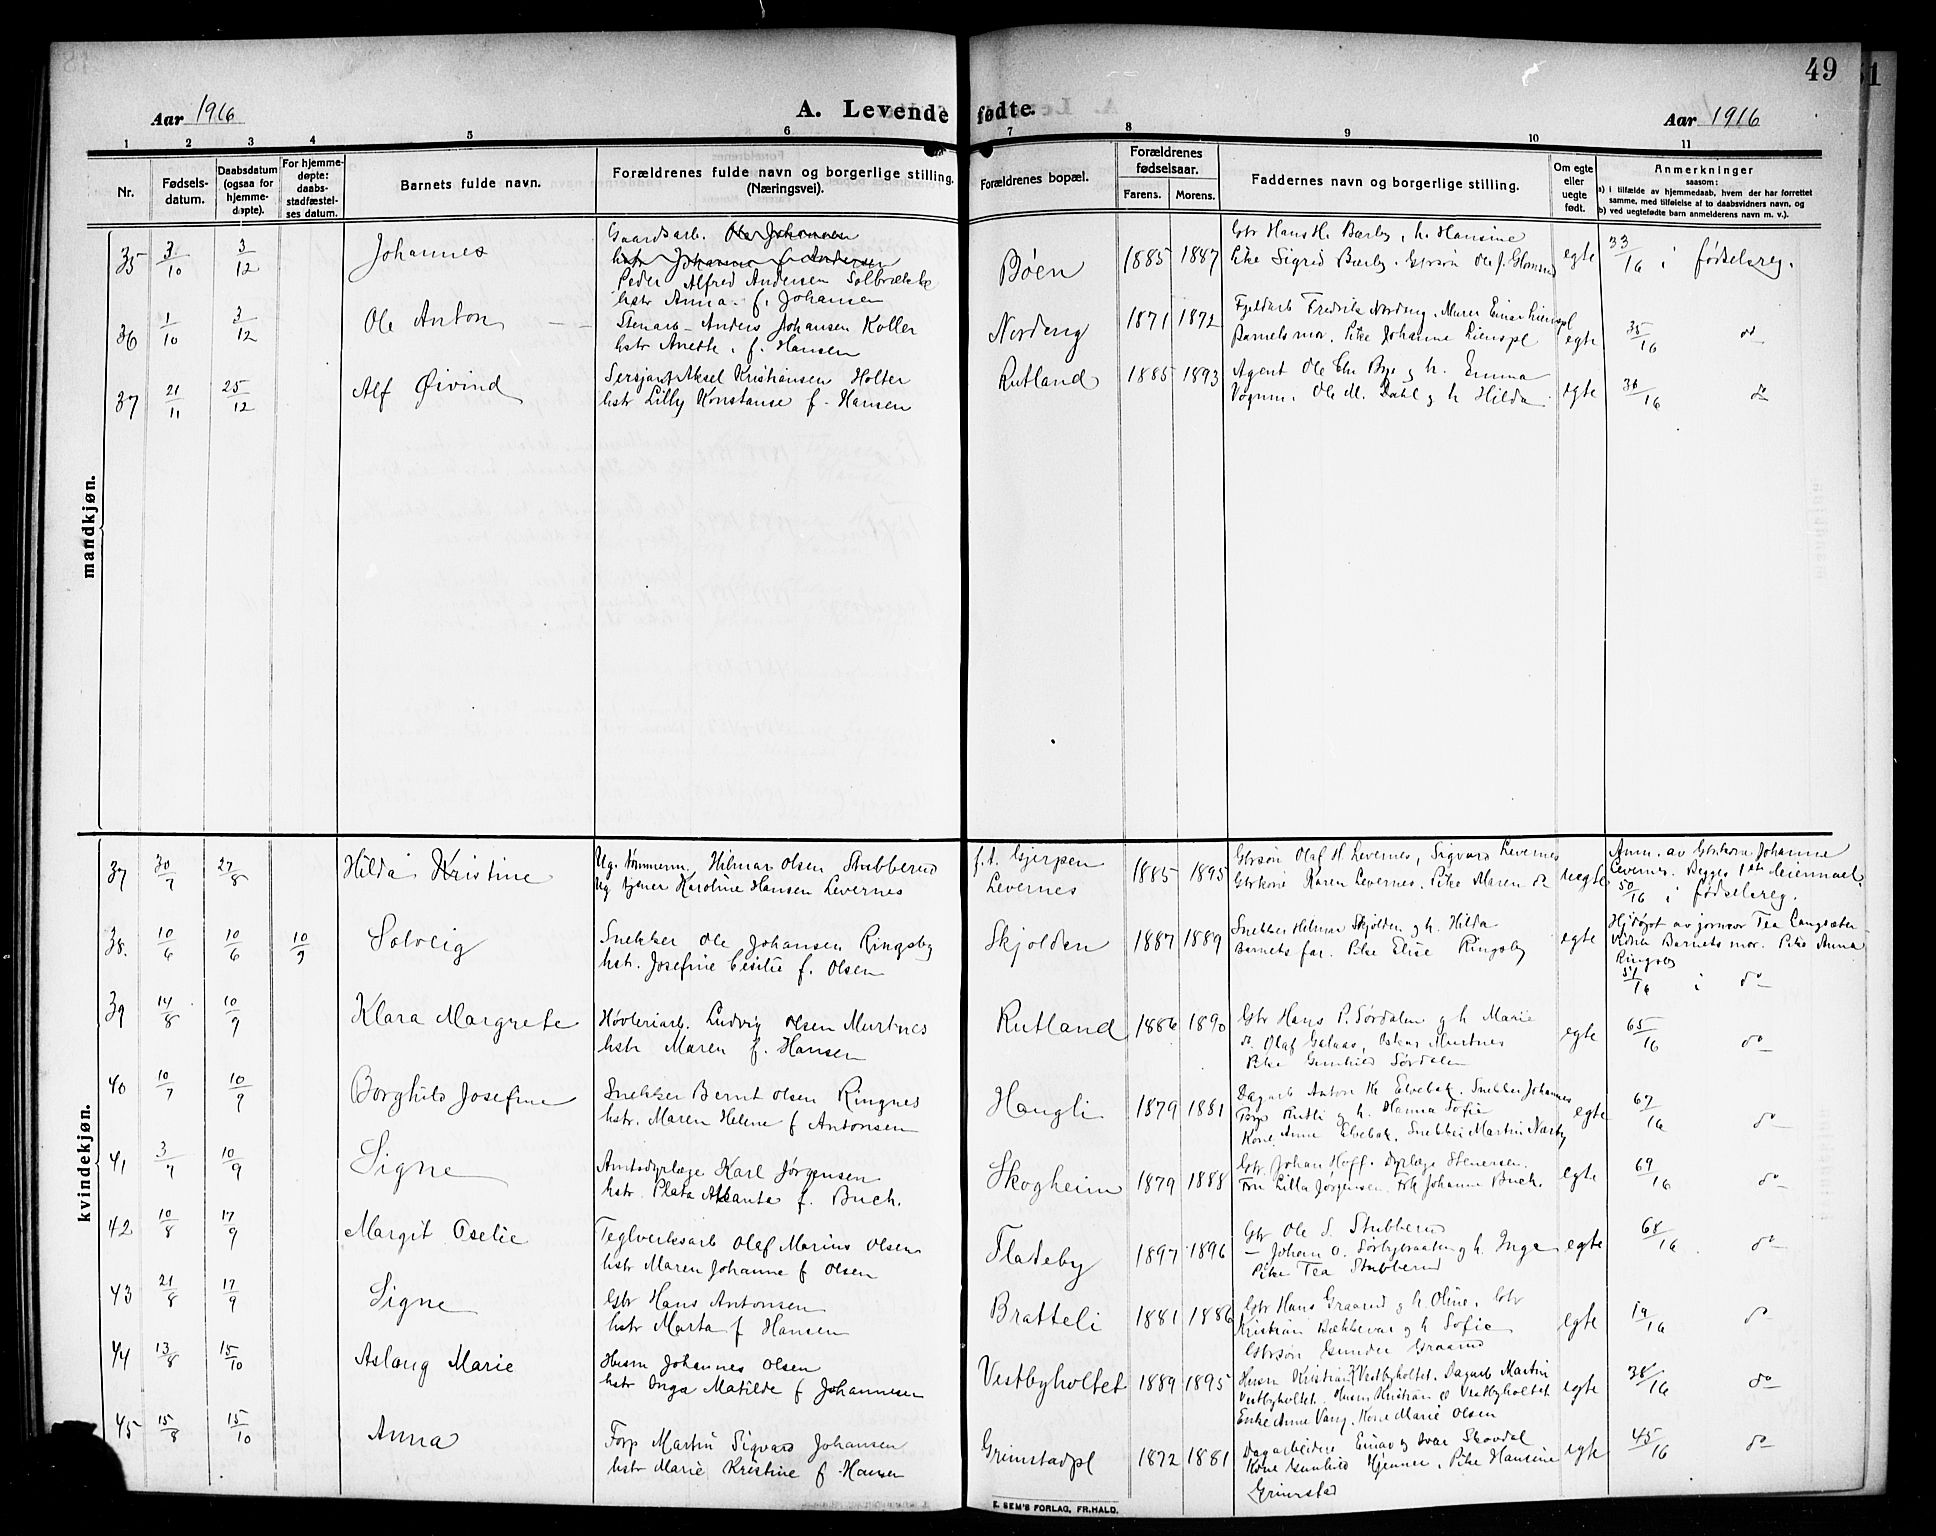 49
Aar 1916
A. Levende fødte.
Aar 1916
1 2 3 4 5 6 7 8 9 10 11
Nr.
Fødsels-
datum.
Daabsdatum
(ogsaa for
hjemme-
døpte).
For hjemme-
døpte:
daabs-
stadfæstel-
ses datum.
Barnets fulde navn.
Forældrenes fulde navn og borgerlige stilling.
(Næringsvei).
Forældrenes bopæl.
Forældrenes
fødselsaar.
Farens. Morens.
Faddernes navn og borgerlige stilling.
Om egte
eller
uegte
født.
Anmerkninger
saasom:
a) i tilfælde av hjemmedaab, hvem der har forrettet
samme, med tilføielse af to daabsvidners navn, og
b) ved uegtefødte barn anmelderens navn m. v.).
mandkjøn.
35 3/10 3/12 Johannes
Gaardsarb. Ole Johansen
hstr Johanne f. Andersen
Peder Alfred Andersen Solbrække
hstr Anna f. Johansen
Bøen 1885 1887
Gbr Hans H. Bærby, h. Hansine
Pike Sigred Bærby. Gbrsøn Ole J.
egte 33/16 i fødselsreg.
36 1/10 3/12 Ole Anton
Stenarb Anders Johansen Koller
hstr Anette. f. Hansen
Nordeng 1871 1872
Fjeldarb Fredrik Nordeng. Murer Einar Lienspl
Barnets mor. Pike Johanne Lienspl
egte 35/16 do
37 21/11 25/12 Alf Øivind
Sersjant Aksel Kristiansen Holter
hstr Lilly Konstanse f. Hansen
Rutland 1885 1893
Agent Ole Chr Bye g h. Emma
Vognm. Ole M. Dahl g h Hilda
egte 36/16 do
kvindekjøn.
37 30/7 27/8 Hilda Kristine
Ug. Tømmerm. Hilmar Olsen Stubberud
Ug tjener Karoline Hansen Levernes
f.t. Gjerpen
Levernes
1885 1895
Gbrsøn Olaf H. Levernes, Sigvard Levernes
Gbrkone Karen Levernes. Pike Maren do
uegte
Anm. av Gbrkone Johanne
Levernes. Begges 1ste leiermaal.
50/16 i fødselsreg.
38. 10/6 10/6 10/9 Solveig
Snekker Ole Johansen Ringsby
hstr. Josefine Cesilie f. Olsen
Skjolden 1887 1889
Snekker Helmer Skjolden g h. Hilda
Barnets far. Pike Elise Ringsby
egte
Hj.døpt av jormor Tea Langsæter
Vidner Barnets mor. Pike Anna
Ringsby
51/16 i do
39 14/8 10/9 Klara Margrete
Høvleriarb. Ludvig Olsen Murtnes
hstr Maren f. Hansen
Rutland 1886 1890
Gbr Hans P. Sørdalen g h Marie
do. Olaf Galaas, Oskar Murtnes
Pike Gunhild Sørdalen
egte 65/16 do
40 10/7 10/9 Borghild Josefine
Snekker Bernt Olsen Ringnes
hstr. Maren Helene f Antonsen
Haugli 1879 1881
Dagarb Anton K Elvebak. Snekker Johannes
Rutli g h. Hanna Sofie
Kone Anne Elvebak, Snekker Martin Narby
egte 67/16 do
41 3/7 10/9 Signe
Amtsdyrlæge Karl Jørgensen
hstr. Plata Atlanta f. Buch.
Skogheim 1879 1888
Gbr. Johan Hoff. Dyrlæge Stenersen.
Fru Lilla Jørgensen. Frk Johanne Buch.
egte 69/16 do
42 10/8 17/9 Margit Oselie
Teglverksarb Olaf Marius Olsen
hstr Maren Johanne f Olsen
Flateby 1897 1896
Gbr Ole S. Stubberud
— Johan O. Sørbybraaten g h. Inga
Pike Tea Stubberud
egte 68/16 do
43 21/8 17/9 Signe
Gbr Hans Antonsen
hstr Marta f Hansen
Bratteli 1881 1886
Gbr Hans Graarud g h. Oline. Gbr
Kristian Bækkevar g h Sofie
Gbrsøn Gunder Graarud
egte 19/16 do
44 13/8 15/10 Aslaug Marie
Husm Johannes Olsen
hstr Inga Matilde f Johannesen
Vestbyholtet 1889 1895
Husm Kristian K Vestbyholtet. Dagarb Martin
Vestbyholtet. Husm Kristian O Vestbyholtet
Enke Anne Vang. Kone Marie Olsen
egte 38/16 do
45 15/8 15/10 Anna
Forp Martin Sigvard Johansen
hstr Marie Kristine f. Hansen
Grimstadpl 1872 1881
Dagarbeidere Einar g Ivar Skovdal
Kone Gunhild Hjenner, Pike Hansine
Grimstad
egte 45/16 do
E. SEM'S FORLAG, FR.HALD.